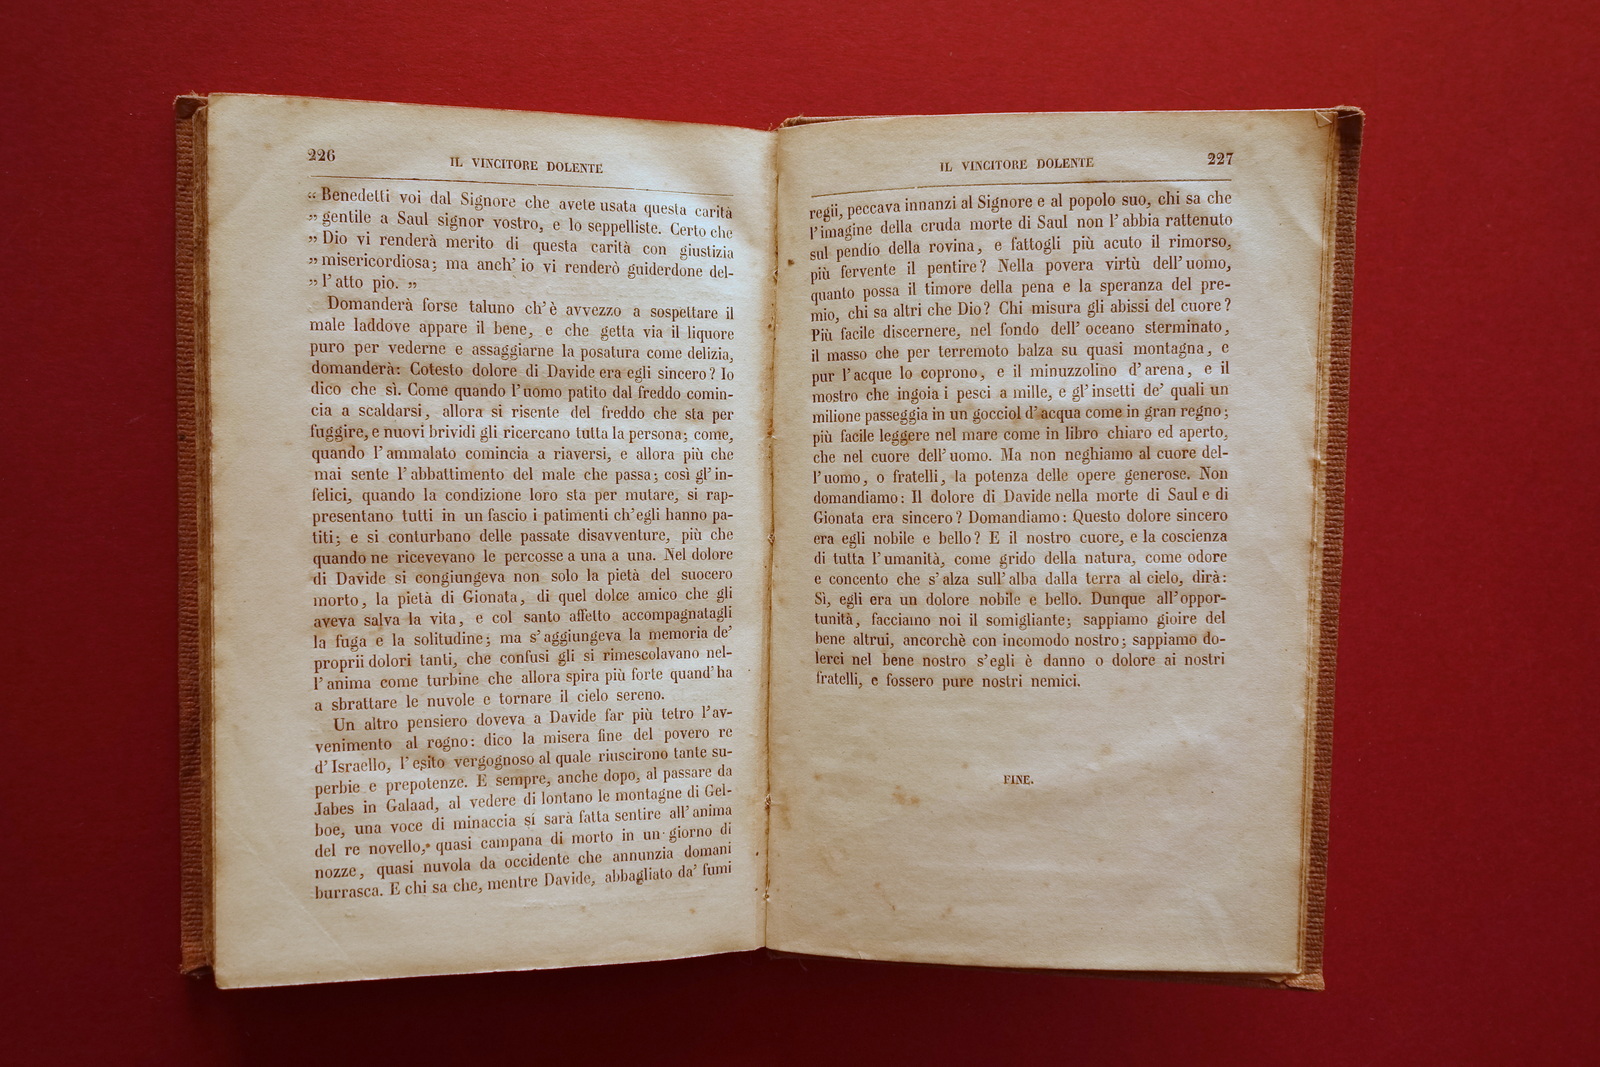 226
IL VINCITORE DOLENTE
“ Benedetti voi dal Signore che avete usata questa carità
„ gentile a Saul signor vostro, e lo seppelliste. Certo che
„ Dio vi renderà merito di questa carità con giustizia
„ misericordiosa; ma anch' io vi renderò guiderdone del-
„ l' atto pio. „
Domanderà forse taluno ch'è avvezzo a sospettare il
male laddove appare il bene, e che getta via il liquore
puro per vederne e assaggiarne la posatura come delizia,
domanderà: Cotesto dolore di Davide era egli sincero? Io
dico che sì. Come quando l'uomo patito dal freddo comin-
cia a scaldarsi, allora si risente del freddo che sta per
fuggire, e nuovi brividi gli ricercano tutta la persona; come,
quando l'ammalato comincia a riaversi, e allora più che
mai sente l'abbattimento del male che passa; così gl'in-
felici, quando la condizione loro sta per mutare, si rap-
presentano tutti in un fascio i patimenti ch'egli hanno pa-
titi; e si conturbano delle passate disavventure, più che
quando ne ricevevano le percosse a una a una. Nel dolore
di Davide si congiungeva non solo la pietà del suocero
morto, la pietà di Gionata, di quel dolce amico che gli
aveva salva la vita, e col santo affetto accompagnatagli
la fuga e la solitudine; ma s'aggiungeva la memoria de'
proprii dolori tanti, che confusi gli si rimescolavano nel-
l'anima come turbine che allora spira più forte quand'ha
a sbrattare le nuvole e tornare il cielo sereno.
Un altro pensiero doveva a Davide far più tetro l'av-
venimento al regno: dico la misera fine del povero re
d'Israello, l'esito vergognoso al quale riuscirono tante su-
perbie e prepotenze. E sempre, anche dopo, al passare da
Jabes in Galaad, al vedere di lontano le montagne di Gel-
boe, una voce di minaccia si sarà fatta sentire all'anima
del re novello, quasi campana di morto in un giorno di
nozze, quasi nuvola da occidente che annunzia domani
burrasca. E chi sa che, mentre Davide, abbagliato da' fumi
IL VINCITORE DOLENTE
227
regii, peccava innanzi al Signore e al popolo suo, chi sa che
l'imagine della cruda morte di Saul non l'abbia rattenuto
sul pendio della rovina, e fattogli più acuto il rimorso,
più fervente il pentire? Nella povera virtù dell'uomo,
quanto possa il timore della pena e la speranza del pre-
mio, chi sa altri che Dio? Chi misura gli abissi del cuore?
Più facile discernere, nel fondo dell'oceano sterminato,
il masso che per terremoto balza su quasi montagna, e
pur l'acque lo coprono, e il minuzzolino d'arena, e il
mostro che ingoia i pesci a mille, e gl'insetti de' quali un
milione passeggia in un gocciol d'acqua come in gran regno;
più facile leggere nel mare come in libro chiaro ed aperto,
che nel cuore dell'uomo. Ma non neghiamo al cuore del-
l'uomo, o fratelli, la potenza delle opere generose. Non
domandiamo: Il dolore di Davide nella morte di Saul e di
Gionata era sincero? Domandiamo: Questo dolore sincero
era egli nobile e bello? E il nostro cuore, e la coscienza
di tutta l'umanità, come grido della natura, come odore
e concento che s'alza sull'alba dalla terra al cielo, dirà:
Sì, egli era un dolore nobile e bello. Dunque all'oppor-
tunità, facciamo noi il somigliante; sappiamo gioire del
bene altrui, ancorchè con incomodo nostro; sappiamo do-
lerci nel bene nostro s'egli è danno o dolore ai nostri
fratelli, e fossero pure nostri nemici.
FINE.